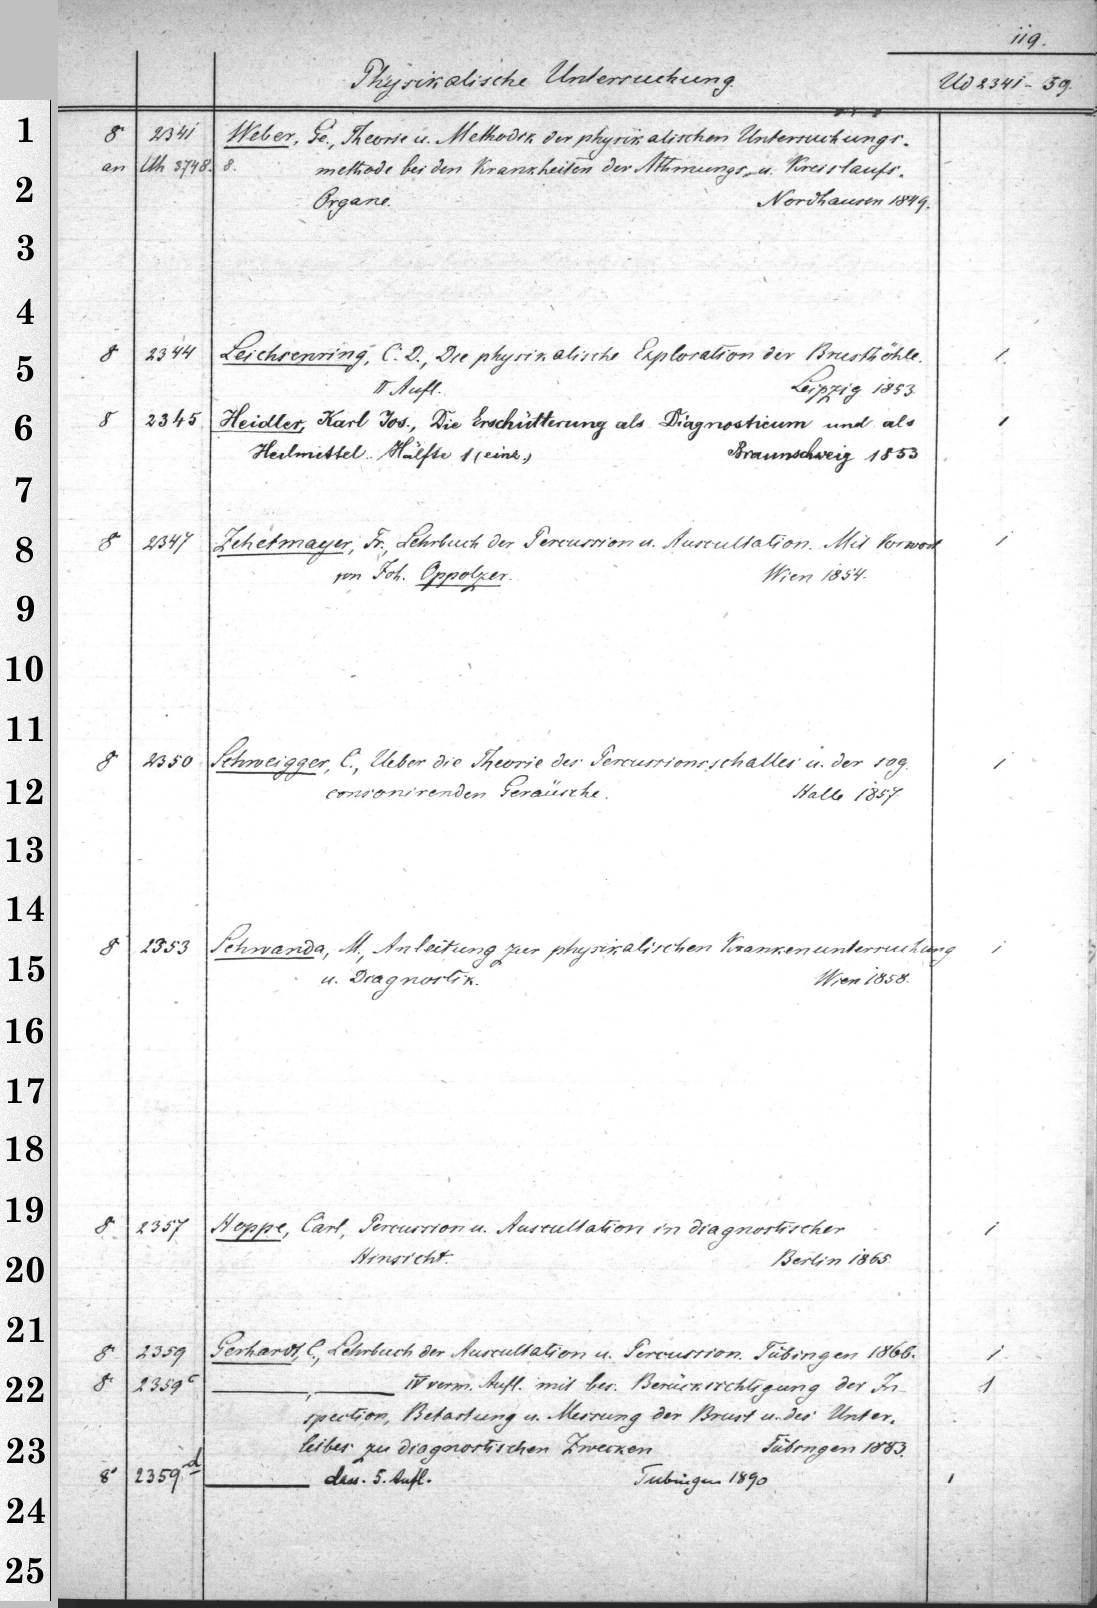 119.
Physikalische Untersuchung
Ud 2341 - 59.
1
8 2341 Weber, Ge., Theorie u. Methodik der physikalischen Untersuchungs-
an Uh 3748. 8. methode bei den Krankheiten der Athmungs- u. Kreislaufs-
2
Organe. Nordhausen 1849.
3
4
8 2344 Leichsenring, C. D., Die physikalische Exploration der Brusthöhle. 1.
5
II Aufl. Leipzig 1853
8 2345 Heidler, Karl Jos., Die Erschütterung als Diagnosticum und als 1
6
Heilmittel. Hälfte 1 (einz.) Braunschweig 1853
7
8 2347 Zehetmayer, Fr., Lehrbuch der Percussion u. Auscultation. Mit Vorwort 1
8
von Joh. Oppolzer. Wien 1854.
9
10
11
8 2350 Schweigger, C., Ueber die Theorie des Percussionsschalles u. der sog. 1
12
consonirenden Geräusche. Halle 1857
13
14
8 2353 Schwanda, M., Anleitung zur physikalischen Krankenuntersuchung 1
15
u. Diagnostik. Wien 1858.
16
17
18
19
8 2357 Hoppe, Carl, Percussion u. Auscultation in diagnostischer 1
20
Hinsicht. Berlin 1865
21
8 2359 Gerhardt, C., Lehrbuch der Auscultation u. Percussion. Tübingen 1866. 1
22
8 2359c ———, ——— IV verm. Aufl. mit bes. Berücksichtigung der In- 1
spection, Betastung u. Messung der Brust u. des Unter-
23
leibes zu diagnostischen Zwecken Tübingen 1883.
8 2359d ——— dass. 5. Aufl. Tübingen 1890 1
24
25